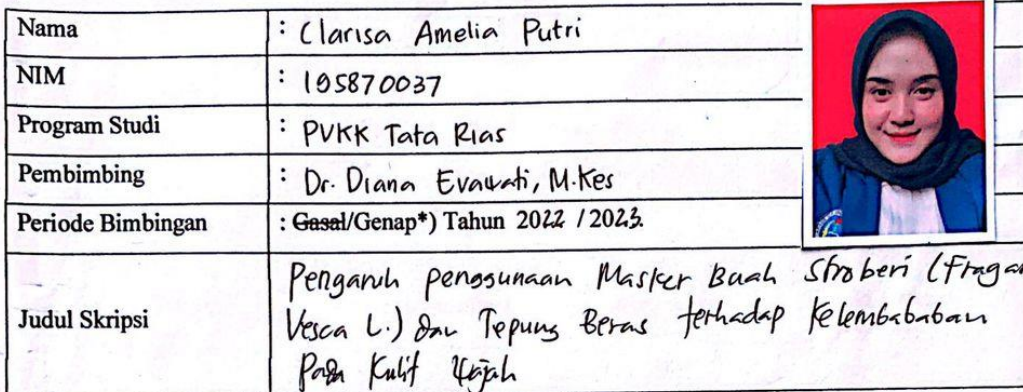 Nama : Clarisa Amelia Putri
NIM : 195870037
Program Studi : PVKK Tata Rias
Pembimbing : Dr. Diana Evawati, M.Kes
Periode Bimbingan : Gasal/Genap*) Tahun 2022 / 2023.
Judul Skripsi
Pengaruh penggunaan Masker Buah Stroberi (Fragar
Vesca L.) dan Tepung Beras terhadap Kelembababan
Pada Kulit Wajah